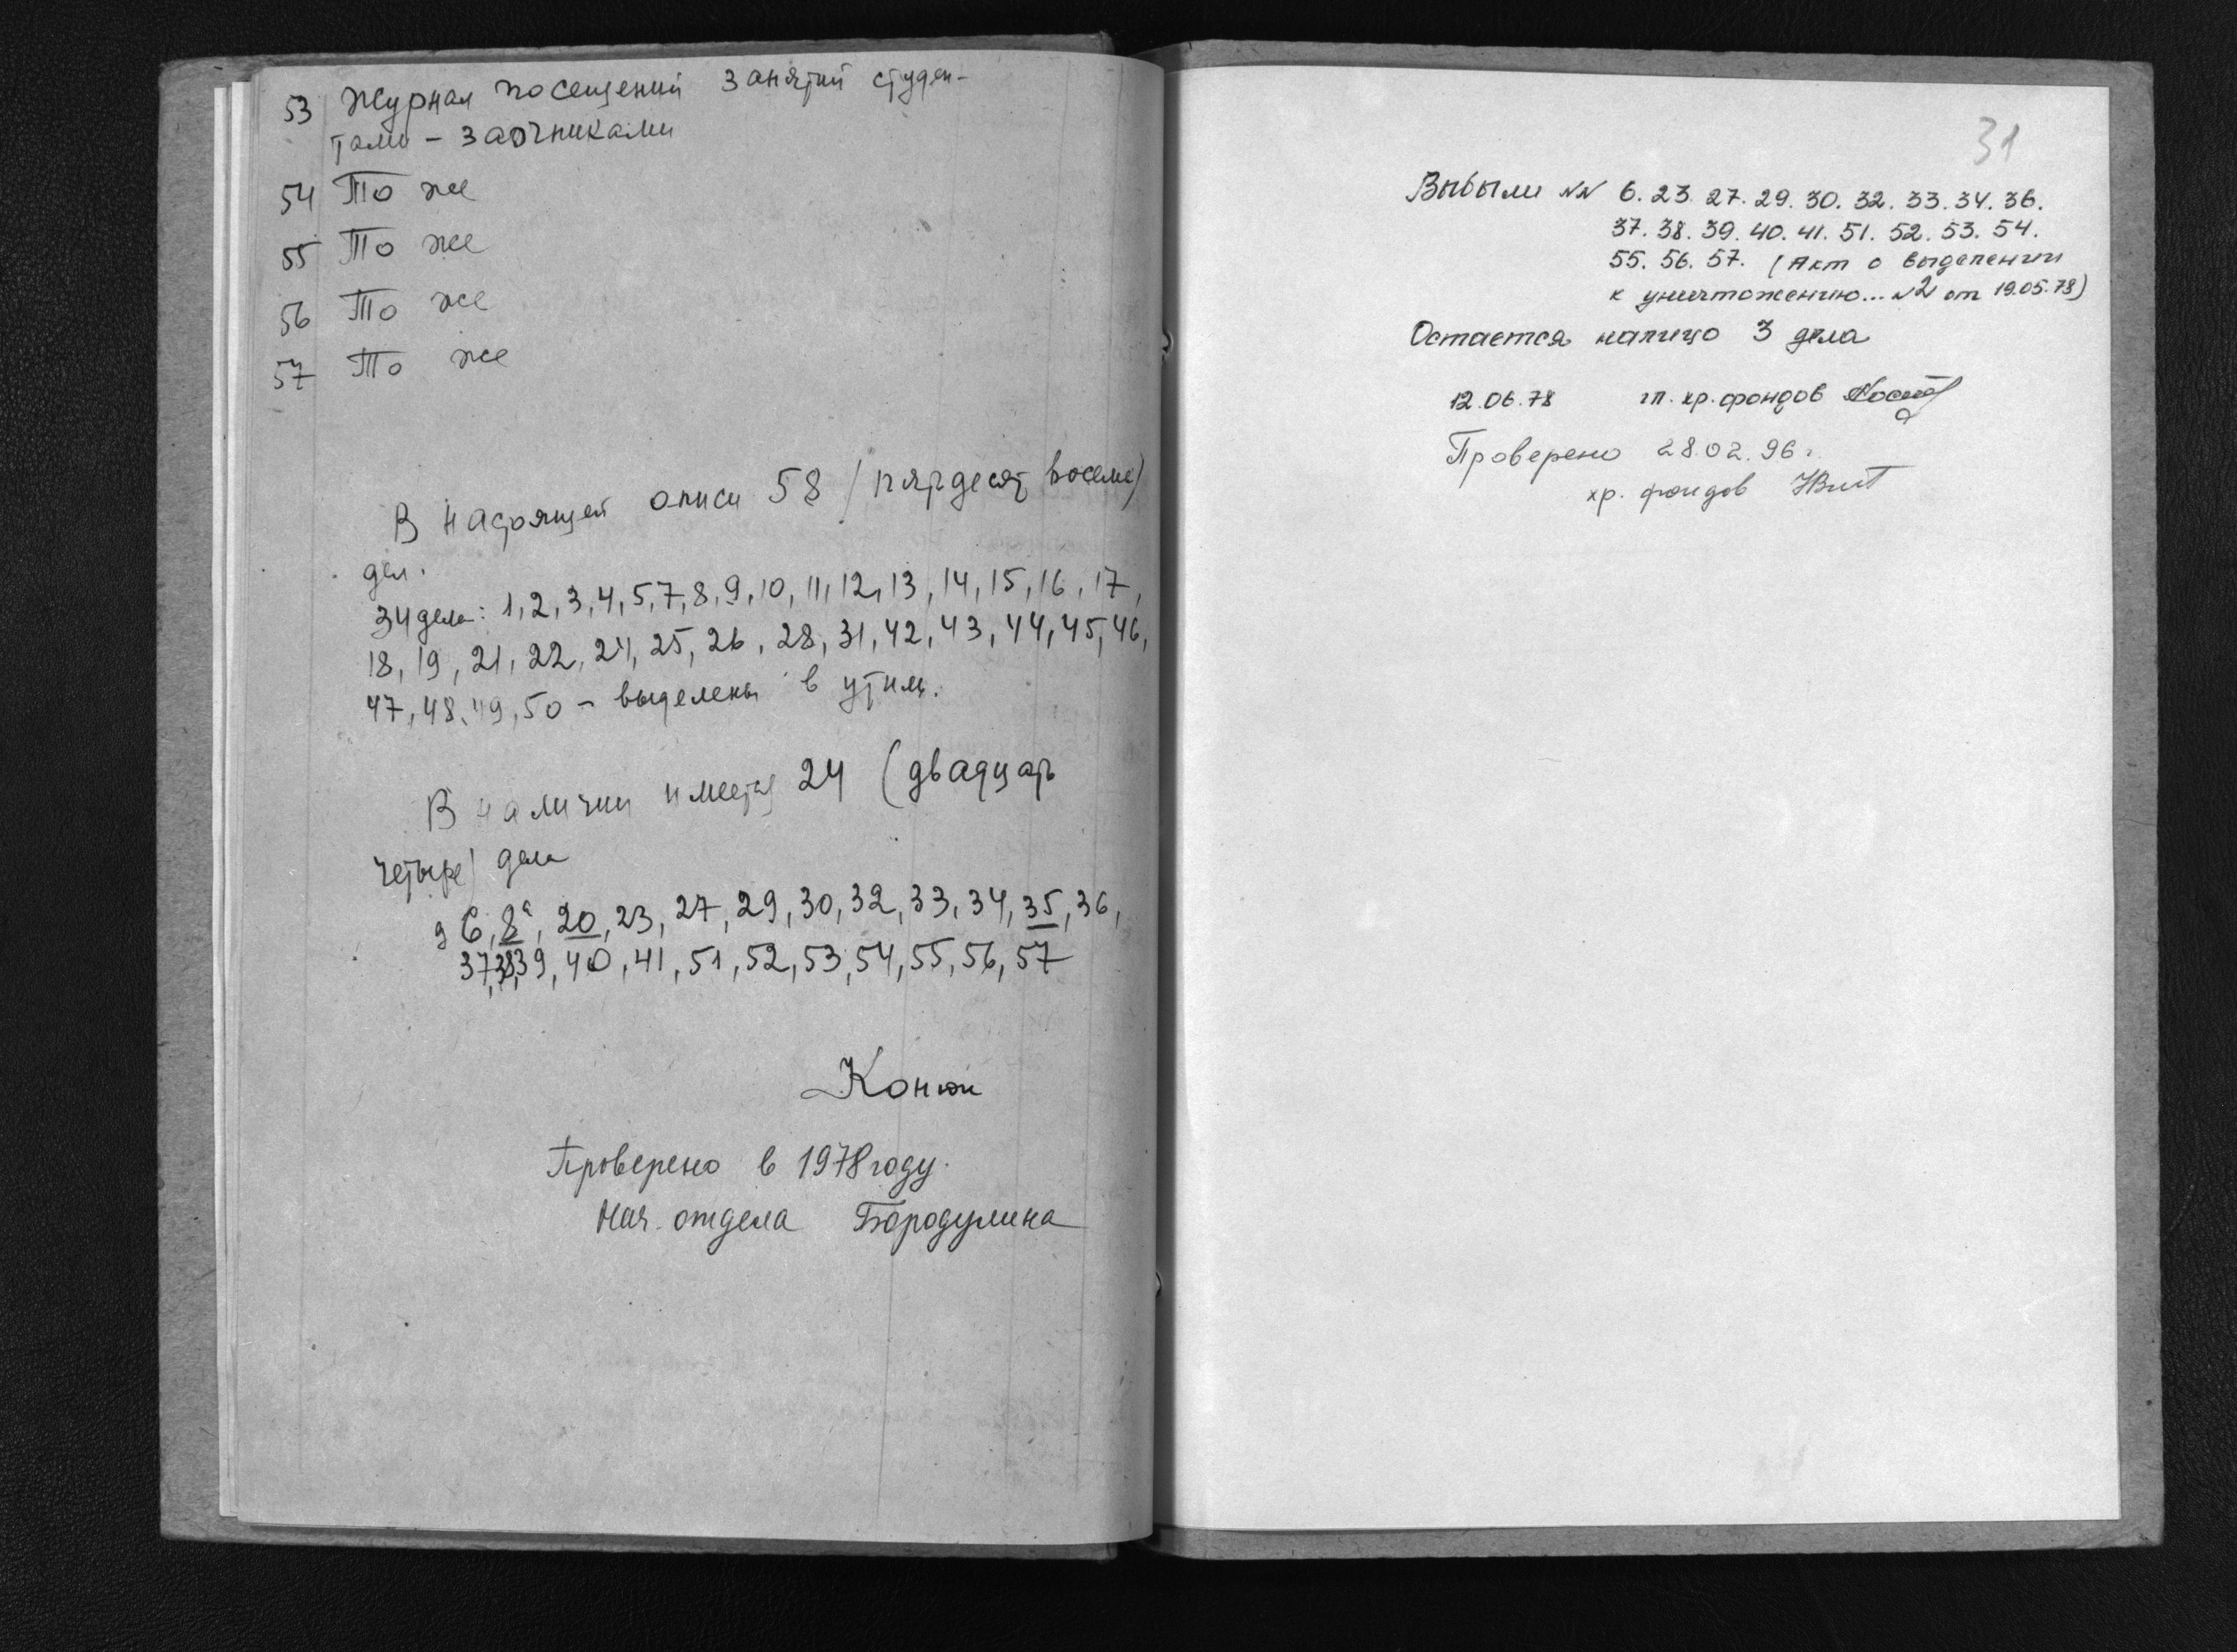 53 Журнал посещений занятий студен-
тами - заочниками
54 То же
55 То же
56 То же
57 То же
В настоящей описи 58 (пятьдесят восемь)
дел.
34 дела: 1, 2, 3, 4, 5, 7, 8, 9, 10, 11, 12, 13, 14, 15, 16, 17,
18, 19, 21, 22, 24, 25, 26, 28, 31, 42, 43, 44, 45, 46,
47, 48, 49, 50 - выделены в утиль.
В наличии имеется 24 (двадцать
четыре) дела
6, 8а, 20, 23, 27, 29, 30, 32, 33, 34, 35, 36,
37, 38, 39, 40, 41, 51, 52, 53, 54, 55, 56, 57
Проверено в 1978 году.
Нач. отдела Бородулина
31
Выбыли NN 6. 23. 27. 29. 30. 32. 33. 34. 36.
37. 38. 39. 40. 41. 51. 52. 53. 54.
55. 56. 57. (Акт о выделении
к уничтожению... N2 от 19.05.78)
Остается налицо 3 дела
12.06.78 гл. хр. фондов
Проверено 28.02.96 г.
хр. фондов